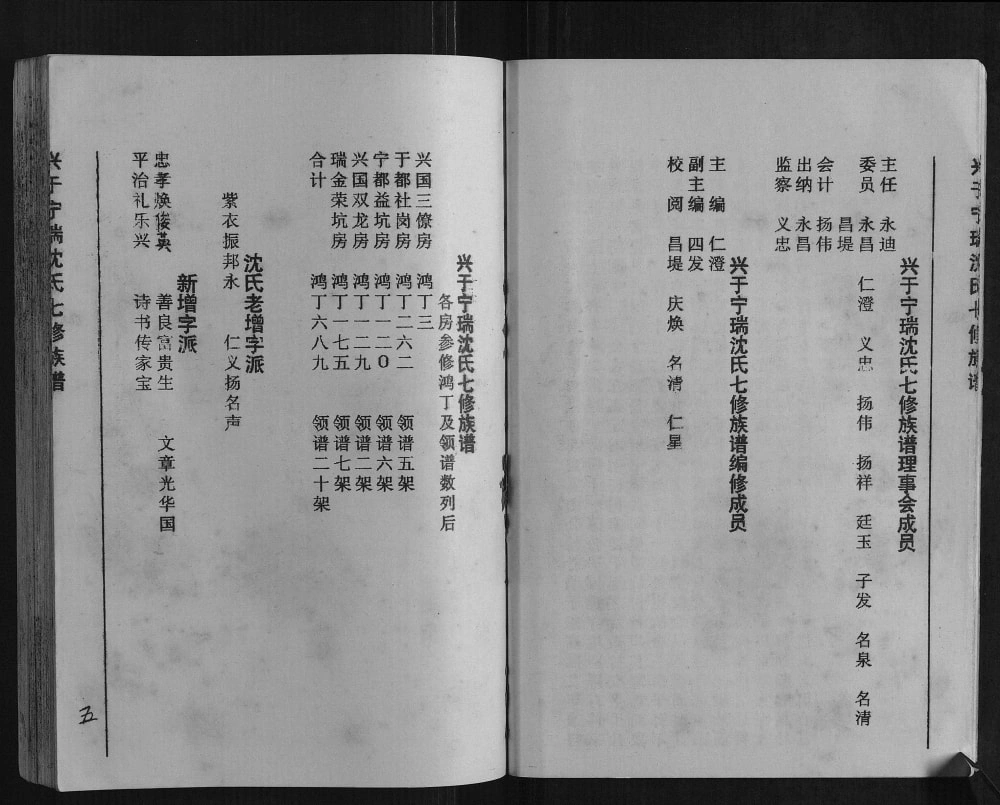 兴于宁瑞沈氏七修族谱
兴于宁瑞沈氏七修族谱理事会成员
主任 永迪
委员 永昌 仁澄 义忠 扬伟 扬祥 廷玉 子发 名泉 名清
昌堤
会计 扬伟
出纳 永昌
监察 义忠
兴于宁瑞沈氏七修族谱编修成员
主编 仁澄
副主编 四发
校阅 昌堤 庆焕 名清 仁星
兴于宁瑞沈氏七修族谱
各房参修鸿丁及领谱数列后
兴国三僚房 鸿丁三
于都社岗房 鸿丁二六二 领谱五架
宁都益坑房 鸿丁一二0 领谱六架
兴国双龙房 鸿丁一二九 领谱二架
瑞金荣坑房 鸿丁一七五 领谱七架
合计 鸿丁六八九 领谱二十架
沈氏老增字派
紫衣振邦永 仁义扬名声
新增字派
忠孝焕俊英 善良富贵生 文章光华国
平治礼乐兴 诗书传家宝
兴于宁瑞沈氏七修族谱
五